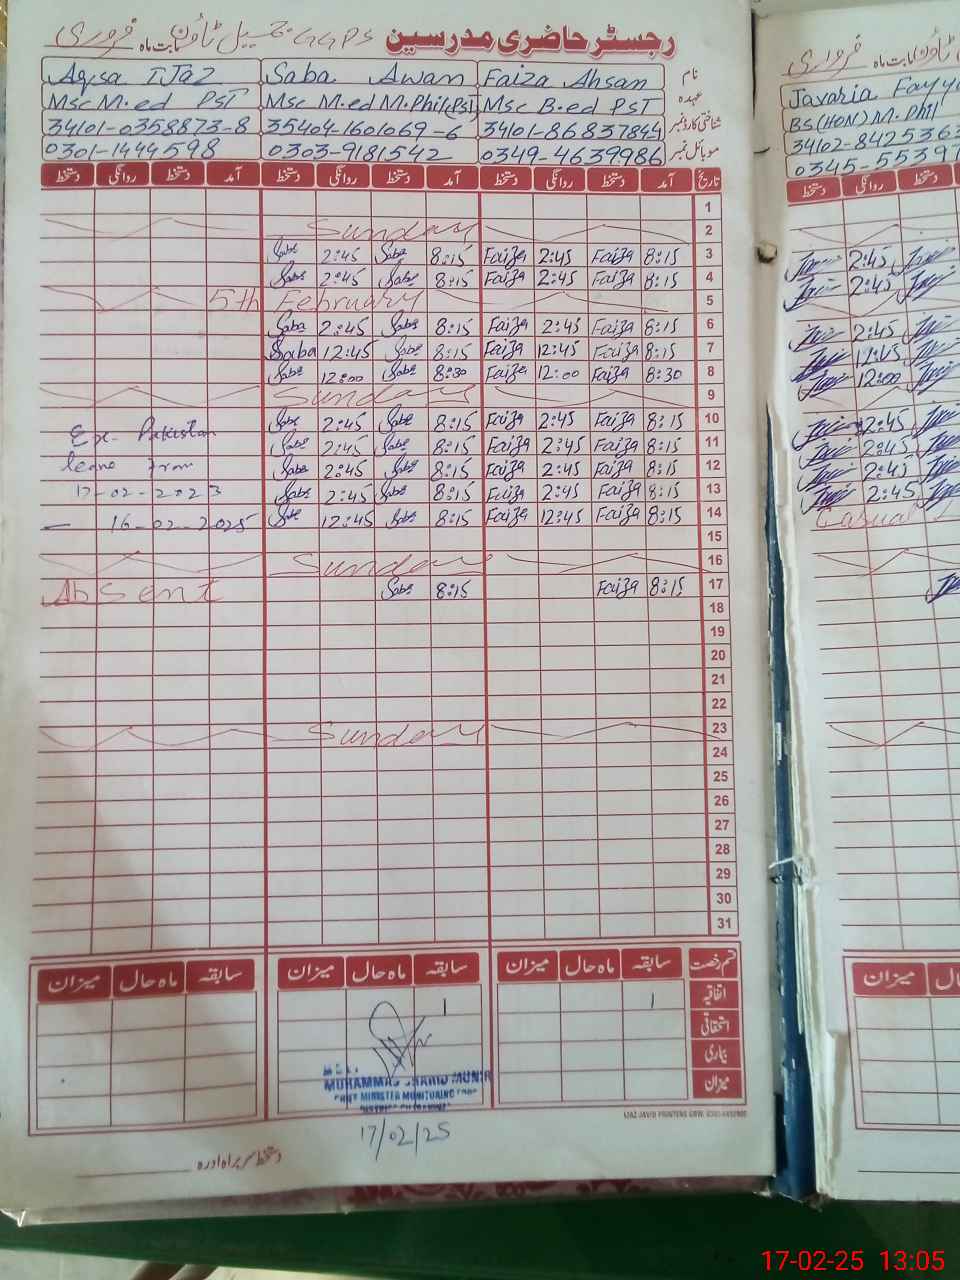 رجسٹر حاضری مدرسین GGPS جمیل ٹاؤن بابت ماہ فروری
نام Faiza Ahsan Saba Awan Aqsa IJaz
عہدہ Msc B.ed PST Msc M.ed M.Phil(PST) Msc M.ed PST
شناختی کارڈ نمبر 34101-86837844 35404-1601069-6 34101-0358873-8
موبائل نمبر 0349-4639986 0303-9181542 0301-1444598
تاریخ آمد دستخط روانگی دستخط آمد دستخط روانگی دستخط آمد دستخط روانگی دستخط
1
2 Sunday
3 8:15 Faiza 2:45 Faiza 8:15 Saba 2:45 Saba
4 8:15 Faiza 2:45 Faiza 8:15 Saba 2:45 Saba
5 5th February
6 8:15 Faiza 2:45 Faiza 8:15 Saba 2:45 Saba
7 8:15 Faiza 12:45 Faiza 8:15 Saba 12:45 Saba
8 8:30 Faiza 12:00 Faiza 8:30 Saba 12:00 Saba
9 Sunday
10 8:15 Faiza 2:45 Faiza 8:15 Saba 2:45 Saba Ex- Pakistan
11 8:15 Faiza 2:45 Faiza 8:15 Saba 2:45 Saba leave from
12 8:15 Faiza 2:45 Faiza 8:15 Saba 2:45 Saba
13 8:15 Faiza 2:45 Faiza 8:15 Saba 2:45 Saba 17-02-2023
14 8:15 Faiza 12:45 Faiza 8:15 Saba 12:45 Saba — 16-02-2025
15
16 Sunday
17 8:15 Faiza 8:15 Saba Absent
18
19
20
21
22
23 Sunday
24
25
26
27
28
29
30
31
قسم رخصت سابقہ ماہ حال میزان سابقہ ماہ حال میزان سابقہ ماہ حال میزان
اتفاقیہ 1 1
استحقاقی
بیماری
میزان
MUHAMMAD SHAHID MUNIR
CHIEF MINISTER MONITORING FORCE
17/02/25
IJAZ JAVID PRINTERS GRW.
دستخط سربراہ ادارہ
فروری بابت ماہ
Javaria Fayya
BS(HON) M.Phil
34102-8425363
0345-55397
دستخط روانگی دستخط
2:45
2:45
2:45
12:45
12:00
2:45
2:45
2:45
2:45
Casual
میزان
17-02-25 13:05